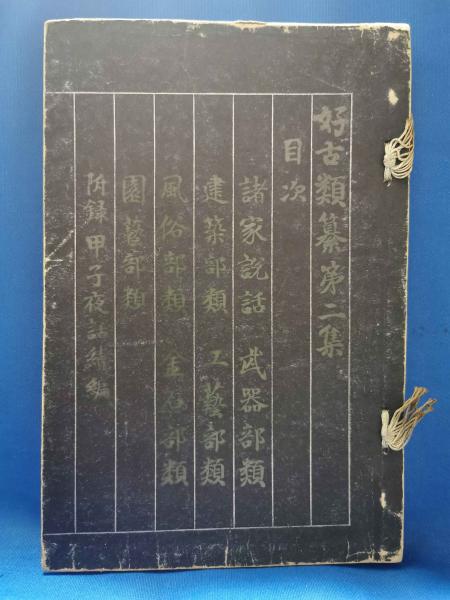 好古類纂第二集
目次
諸家説話 武器部類
建築部類 工藝部類
風俗部類 金石部類
園藝部類
附録 甲子夜話續編